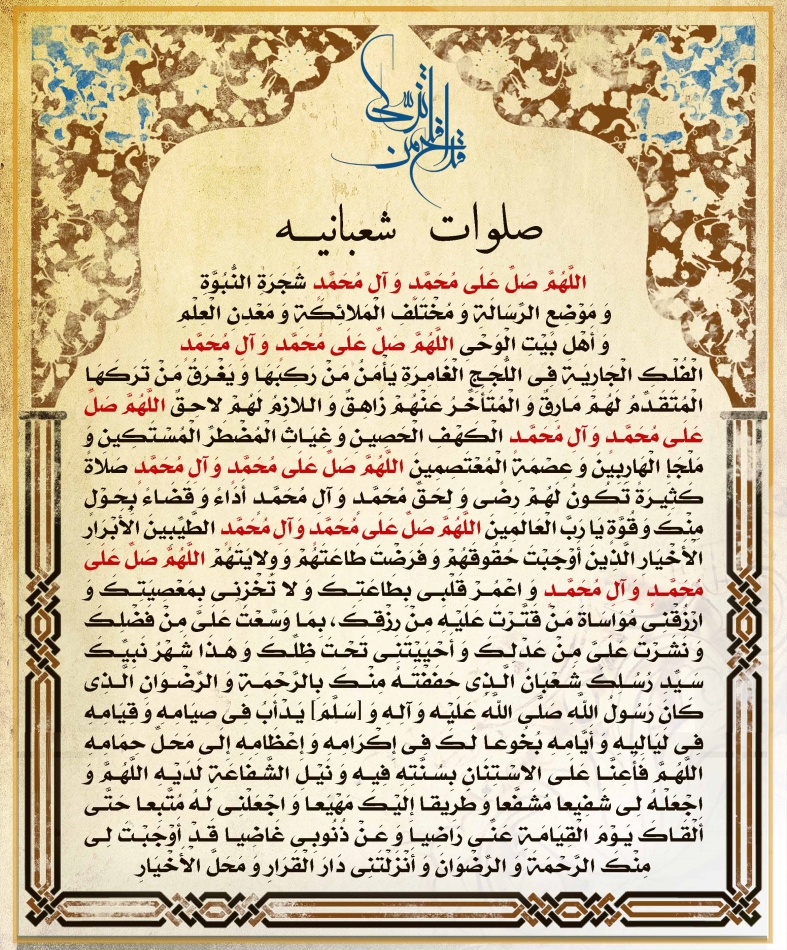 قد افلح من تزکی
صلوات شعبانیه
اللَّهُمَّ صَلِّ عَلَى مُحَمَّد وَ آلِ مُحَمَّد شَجَرَةِ النُّبُوَّة
وَ مَوْضِعِ الرِّسَالَة وَ مُخْتَلَفِ الْمَلائِكَة وَ مَعْدِنِ الْعِلْمِ
وَ أَهْلِ بَيْتِ الْوَحْيِ اللَّهُمَّ صَلِّ عَلَى مُحَمَّد وَ آلِ مُحَمَّد
الْفُلْكِ الْجَارِيَة فِي اللُّجَجِ الْغَامِرَةِ يَأْمَنُ مَنْ رَكِبَهَا وَ يَغْرَقُ مَنْ تَرَكَهَا
الْمُتَقَدِّمُ لَهُمْ مَارِقٌ وَ الْمُتَأَخِّرُ عَنْهُمْ زَاهِقٌ وَ اللازِمُ لَهُمْ لاحِقٌ اللَّهُمَّ صَلِّ
عَلَى مُحَمَّد وَ آلِ مُحَمَّد الْكَهْفِ الْحَصِينِ وَ غِيَاثِ الْمُضْطَرِّ الْمُسْتَكِينِ وَ
مَلْجَإِ الْهَارِبِينَ وَ عِصْمَةِ الْمُعْتَصِمِينَ اللَّهُمَّ صَلِّ عَلَى مُحَمَّد وَ آلِ مُحَمَّد صَلاةً
كَثِيرَةً تَكُونُ لَهُمْ رِضًى وَ لِحَقِّ مُحَمَّد وَ آلِ مُحَمَّد أَدَاءً وَ قَضَاءً بِحَوْلٍ
مِنْكَ وَ قُوَّة يَا رَبَّ الْعَالَمِينَ اللَّهُمَّ صَلِّ عَلَى مُحَمَّد وَ آلِ مُحَمَّد الطَّيِّبِينَ الْأَبْرَارِ
الْأَخْيَارِ الَّذِينَ أَوْجَبْتَ حُقُوقَهُمْ وَ فَرَضْتَ طَاعَتَهُمْ وَ وِلايَتَهُمْ اللَّهُمَّ صَلِّ عَلَى
مُحَمَّد وَ آلِ مُحَمَّد وَ اعْمُرْ قَلْبِي بِطَاعَتِكَ وَ لا تُخْزِنِي بِمَعْصِيَتِكَ وَ
ارْزُقْنِي مُوَاسَاةَ مَنْ قَتَّرْتَ عَلَيْهِ مِنْ رِزْقِكَ، بِمَا وَسَّعْتَ عَلَيَّ مِنْ فَضْلِكَ
وَ نَشَرْتَ عَلَيَّ مِنْ عَدْلِكَ وَ أَحْيَيْتَنِي تَحْتَ ظِلِّكَ وَ هَذَا شَهْرُ نَبِيِّكَ
سَيِّدِ رُسُلِكَ شَعْبَانُ الَّذِي حَفَفْتَهُ مِنْكَ بِالرَّحْمَة وَ الرِّضْوَانِ الَّذِي
كَانَ رَسُولُ اللَّهِ صَلَّى اللَّهُ عَلَيْهِ وَ آلِهِ وَ [سَلَّمَ] يَدْأَبُ فِي صِيَامِهِ وَ قِيَامِهِ
فِي لَيَالِيهِ وَ أَيَّامِهِ بُخُوعا لَكَ فِي إِكْرَامِهِ وَ إِعْظَامِهِ إِلَى مَحَلِّ حِمَامِهِ
اللَّهُمَّ فَأَعِنَّا عَلَى الاسْتِنَانِ بِسُنَّتِهِ فِيهِ وَ نَيْلِ الشَّفَاعَة لَدَيْهِ اللَّهُمَّ وَ
اجْعَلْهُ لِي شَفِيعا مُشَفَّعا وَ طَرِيقا إِلَيْكَ مَهْيَعا وَ اجْعَلْنِي لَهُ مُتَّبِعا حَتَّى
أَلْقَاكَ يَوْمَ الْقِيَامَة عَنِّي رَاضِيا وَ عَنْ ذُنُوبِي غَاضِيا قَدْ أَوْجَبْتَ لِي
مِنْكَ الرَّحْمَة وَ الرِّضْوَانَ وَ أَنْزَلْتَنِي دَارَ الْقَرَارِ وَ مَحَلَّ الْأَخْيَارِ